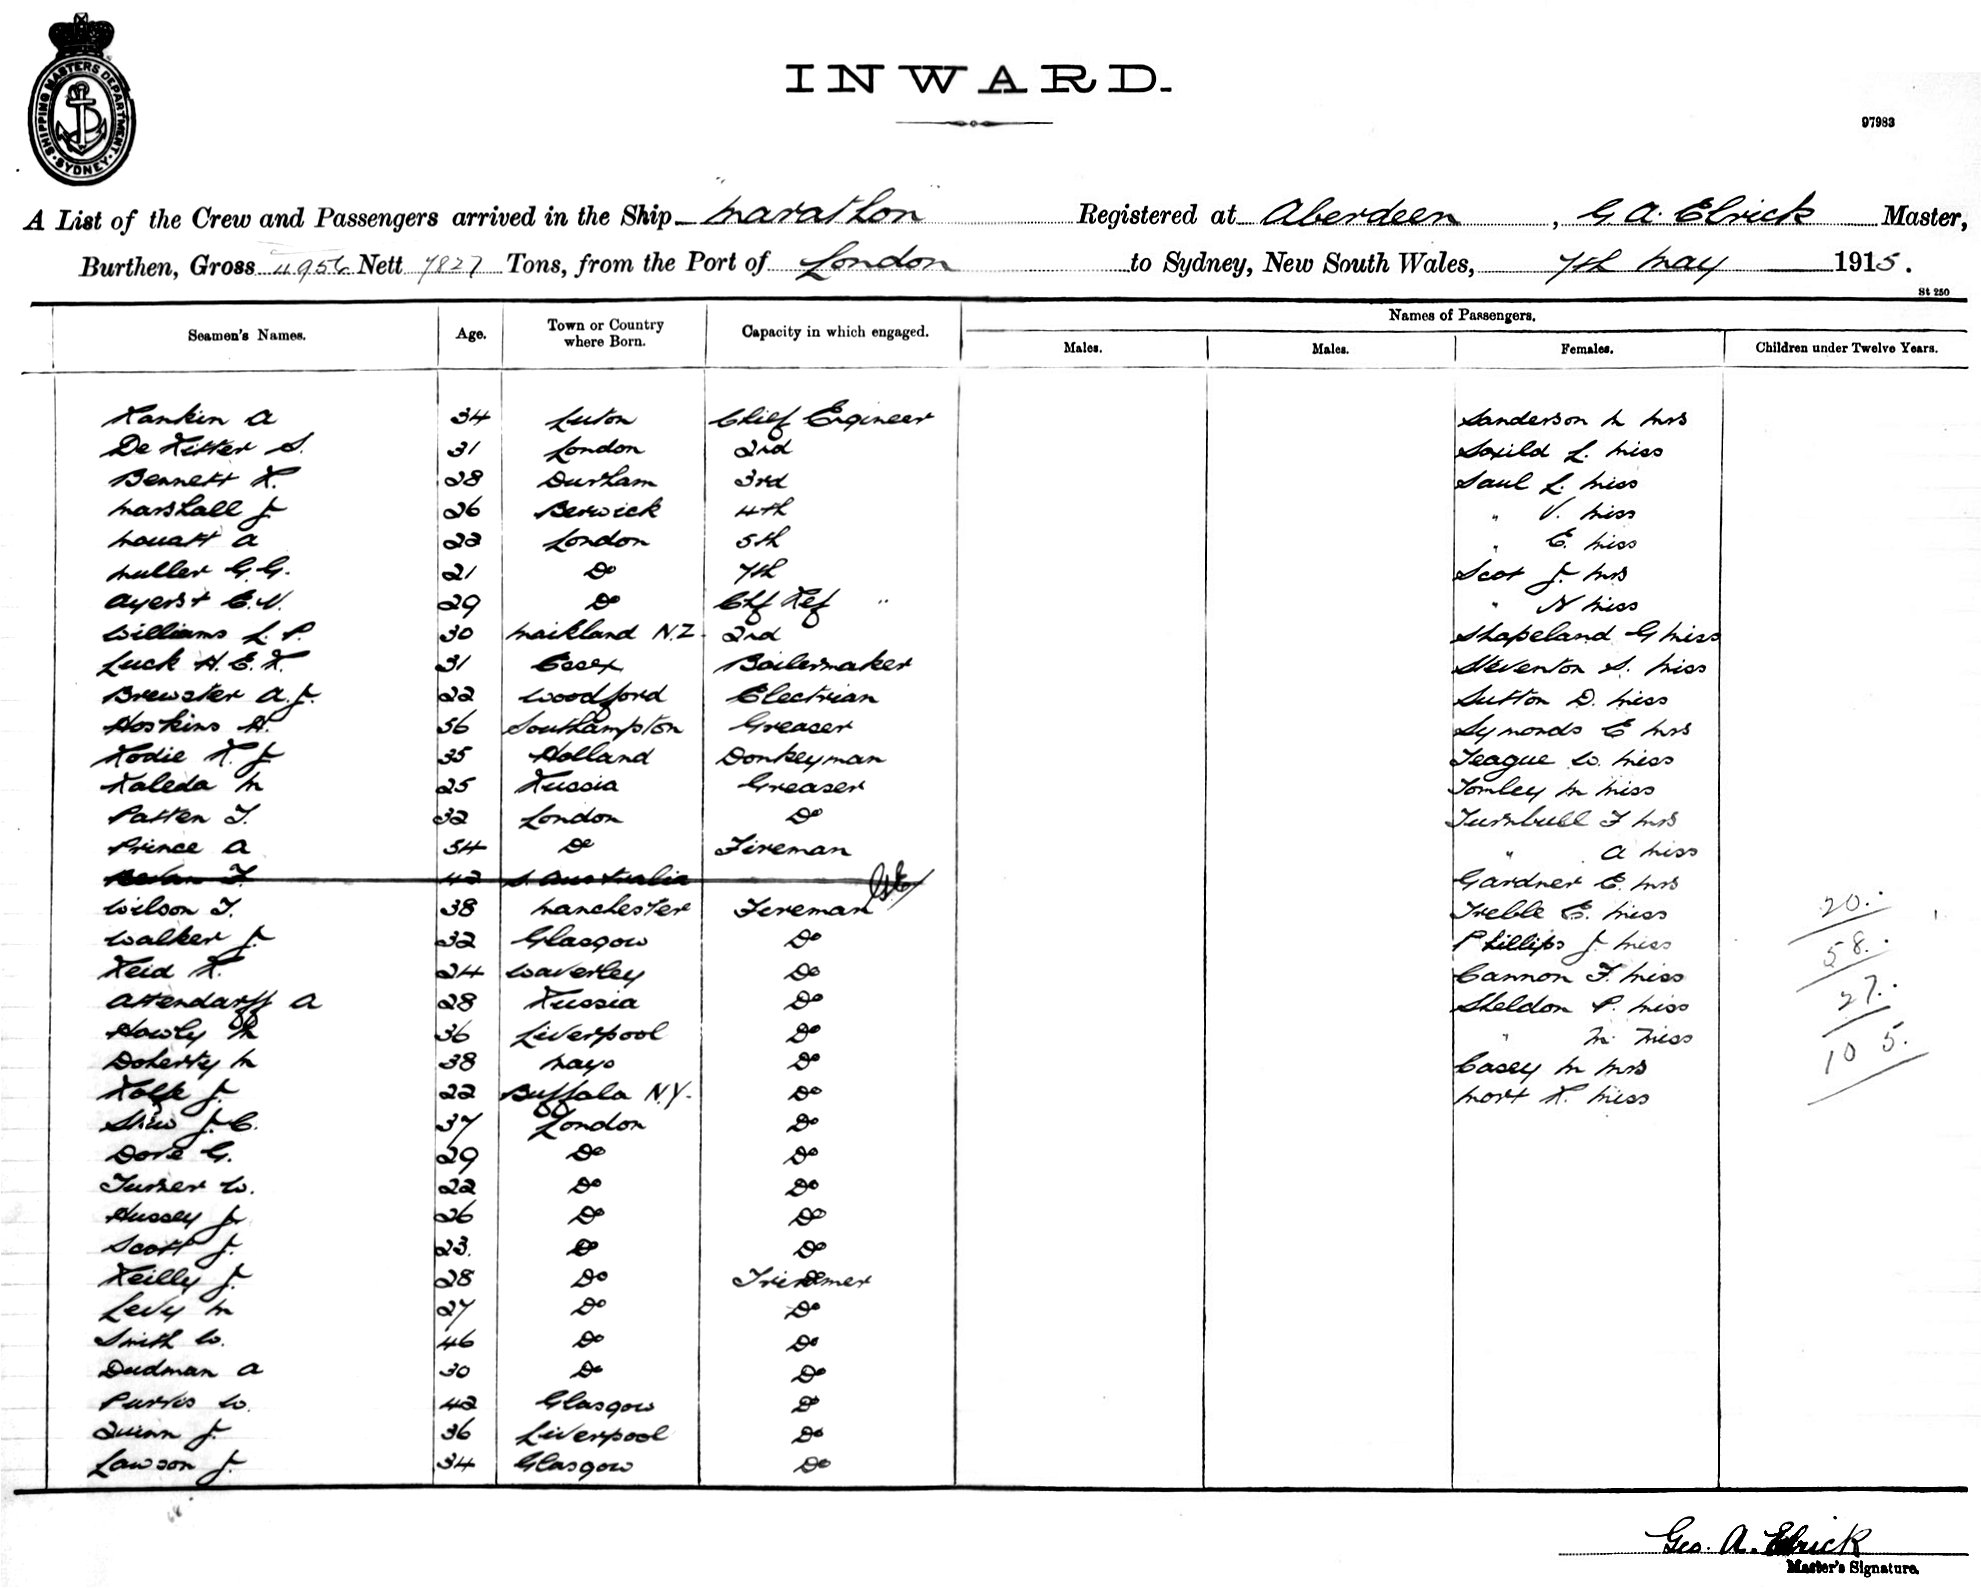 SHIPPING MASTERS DEPARTMENT. SYDNEY
INWARD.
97983
A List of the Crew and Passengers arrived in the Ship Marathon Registered at Aberdeen, G A. Elrick Master,
Burthen, Gross 11956 Nett 7827 Tons, from the Port of London to Sydney, New South Wales, 7th May 1915.
St 250
Seamen's Names. Age. Town or Country where Born. Capacity in which engaged. Names of Passengers.
Males. Males. Females. Children under Twelve Years.
Rankin A 34 Luton Chief Engineer Sanderson M Mrs
De Ritter S. 31 London 2nd Saxild L. Miss
Bennett R. 28 Durham 3rd Saul L. Miss
Marshall J 26 Berwick 4th " V. Miss
Mouatt A 22 London 5th " E. Miss
Muller G.G. 21 Do 7th Scot J. Mrs
Ayerst C.V. 29 Do Chf Ref " " N Miss
Williams L.P. 30 Maikland N.Z. 2nd Shapeland G Miss
Luck H.E.R. 31 Essex Boilermaker Steventon S. Miss
Brewster A.J. 22 Woodford Electrian Sutton D. Miss
Hoskins H. 56 Southampton Greaser Symonds E Mrs
Rodie R.J 35 Holland Donkeyman Teague W. Miss
Raleda M 25 Russia Greaser Tomley M Miss
Patten T. 32 London Do Turnbull F Mrs
Prince A 54 Do Fireman " A Miss
42 S. Australia Gardner E. Mrs
Wilson T. 38 Manchester Fireman Treble E. Miss 20.
Walker J 32 Glasgow Do Phillips J. Miss 58.
Reid R. 24 Waverley Do Cannon F. Miss
Attendarff A 28 Russia Do Sheldon P. Miss 27.
Howly M 36 Liverpool Do " M. Miss
Doherty M 38 Mayo Do Casey M Mrs 105.
Rolfe J. 22 Buffala N.Y. Do Mort R. Miss
Shiw J.C. 37 London Do
Dove G. 29 Do Do
Turner W. 22 Do Do
Hussey J. 26 Do Do
Scott J. 23. Do Do
Reilly J. 28 Do Trimmer
Levy M 27 Do Do
Smith W. 46 Do Do
Dudman A 30 Do Do
Purvis W. 42 Glasgow Do
Quinn J. 36 Liverpool Do
Lawson J. 34 Glasgow Do
Geo. A. Elrick
Master's Signature.